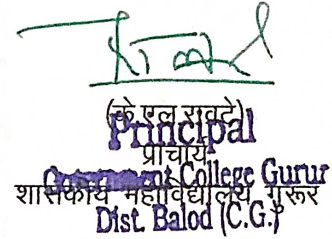 (के.एल.रावटे)
Principal
प्राचार्य
Government College Gurur
शासकीय महाविद्यालय गुरूर
Dist. Balod (C.G.)